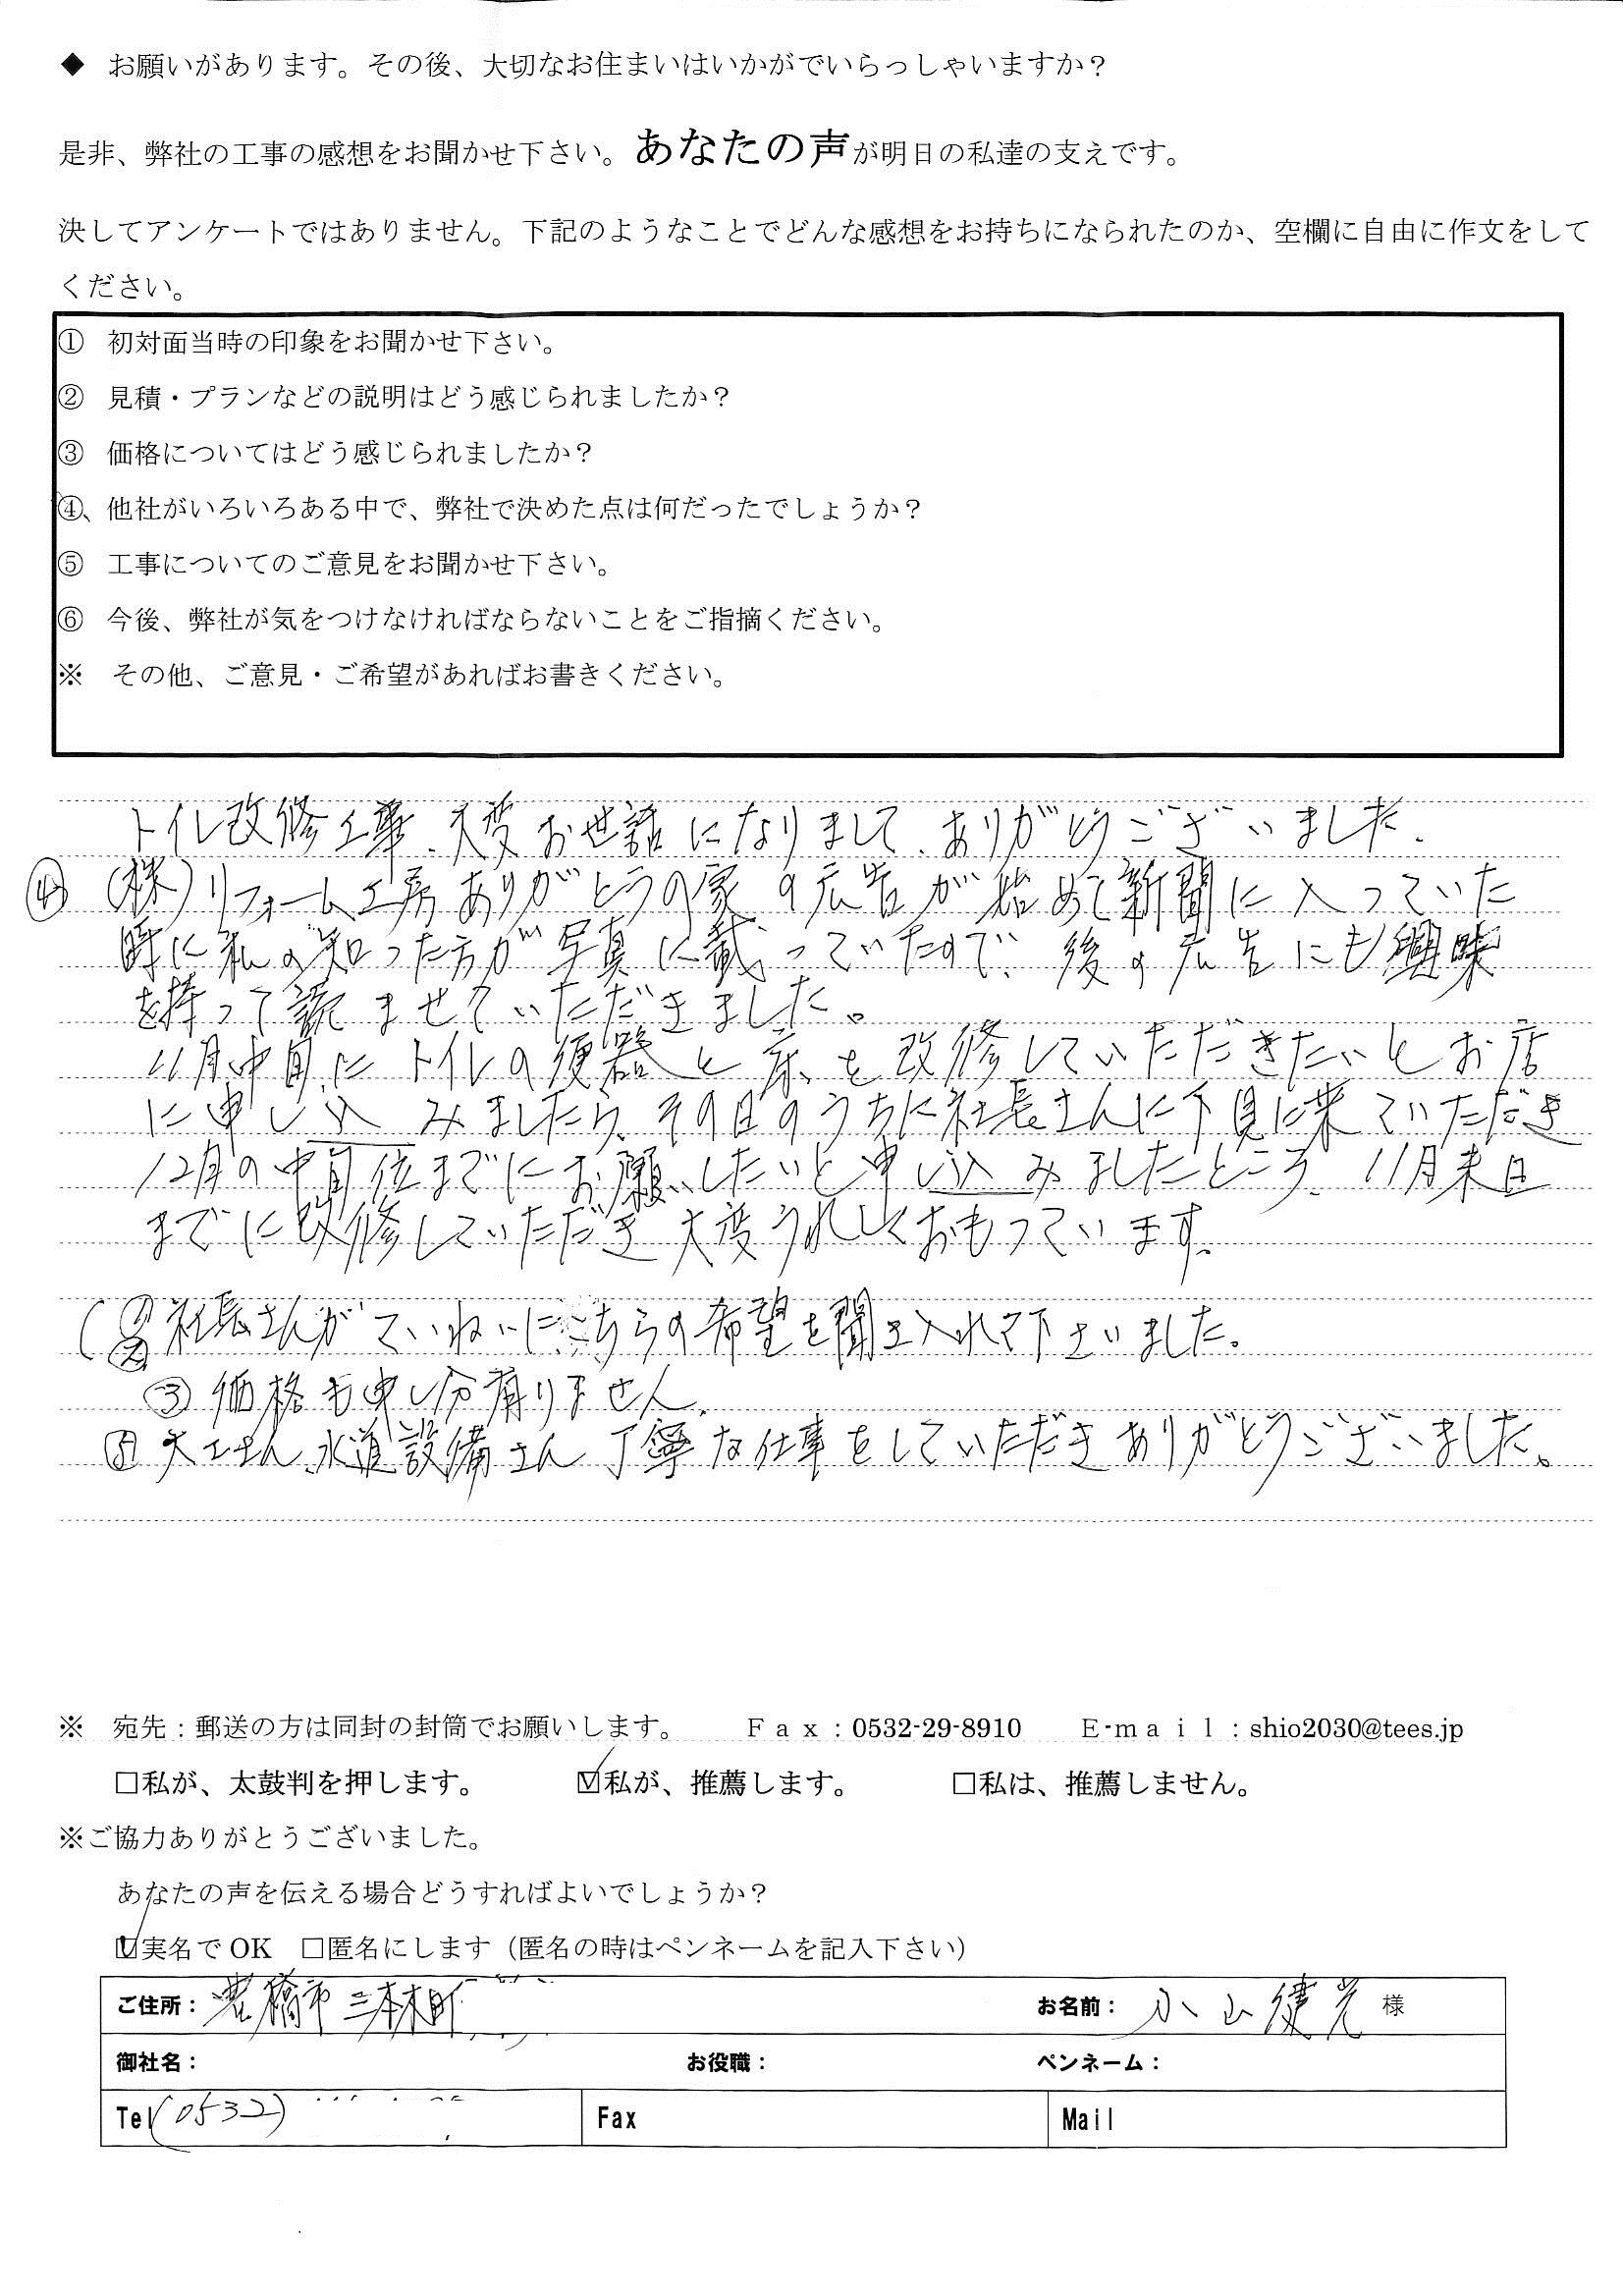 ◆ お願いがあります。その後、大切なお住まいはいかがでいらっしゃいますか？
是非、弊社の工事の感想をお聞かせ下さい。あなたの声が明日の私達の支えです。
決してアンケートではありません。下記のようなことでどんな感想をお持ちになられたのか、空欄に自由に作文をして
ください。
① 初対面当時の印象をお聞かせ下さい。
② 見積・プランなどの説明はどう感じられましたか？
③ 価格についてはどう感じられましたか？
④、他社がいろいろある中で、弊社で決めた点は何だったでしょうか？
⑤ 工事についてのご意見をお聞かせ下さい。
⑥ 今後、弊社が気をつけなければならないことをご指摘ください。
※ その他、ご意見・ご希望があればお書きください。
トイレ改修工事、大変お世話になりまして、ありがとうございました。
④ (株)リフォーム工房ありがとうの家の広告が始めて新聞に入っていた
時に私の知った方が写真に載っていたので、後の広告にも興味
を持って読ませていただきました。
11月中旬に トイレの便器と床を改修していただきたいとお店
に申し込みましたら、その日のうちに社長さんに下見に来ていただき
12月の中旬位までにお願いしたいと申し込みましたところ、11月末日
までに改修していただき大変うれしくおもっています。
(①② 社長さんがていねいにこちらの希望を聞き入れて下さいました。
③ 価格も申し分有りません。
⑤ 大工さん、水道設備さん丁寧な仕事をしていただきありがとうございました。
※ 宛先：郵送の方は同封の封筒でお願いします。 Ｆａｘ：0532-29-8910 Ｅ-ｍａｉｌ：shio2030@tees.jp
□私が、太鼓判を押します。 ☑私が、推薦します。 □私は、推薦しません。
※ご協力ありがとうございました。
あなたの声を伝える場合どうすればよいでしょうか？
☑実名で OK □匿名にします（匿名の時はペンネームを記入下さい）
ご住所： 豊橋市三本木町 お名前： 小山健光 様
御社名： お役職： ペンネーム：
Tel (0532) Fax Mail